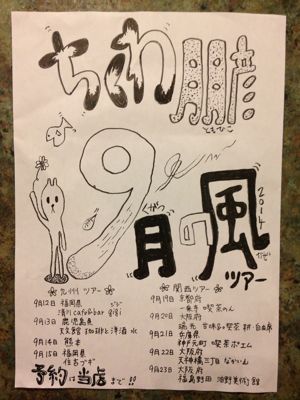 ちくわ
ともひこ
9月の風
くがつ
かぜ
2014
ツアー
九州ツアー
9月12日 福岡県
清川 cafe&bar gigi
9月13日 鹿児島県
天文館 珈琲と洋酒
9月14日 熊本
9月15日 福岡県
住吉
予約は当店まで!!
関西ツアー
9月19日 京都府
一乗寺 喫茶のん
9月20日 大阪府
瑞光 甘味&喫茶 耕・自由席
9月21日 兵庫県
神戸元町 喫茶ポエム
9月22日 大阪府
天神橋三丁目
9月23日 大阪府
福島野田